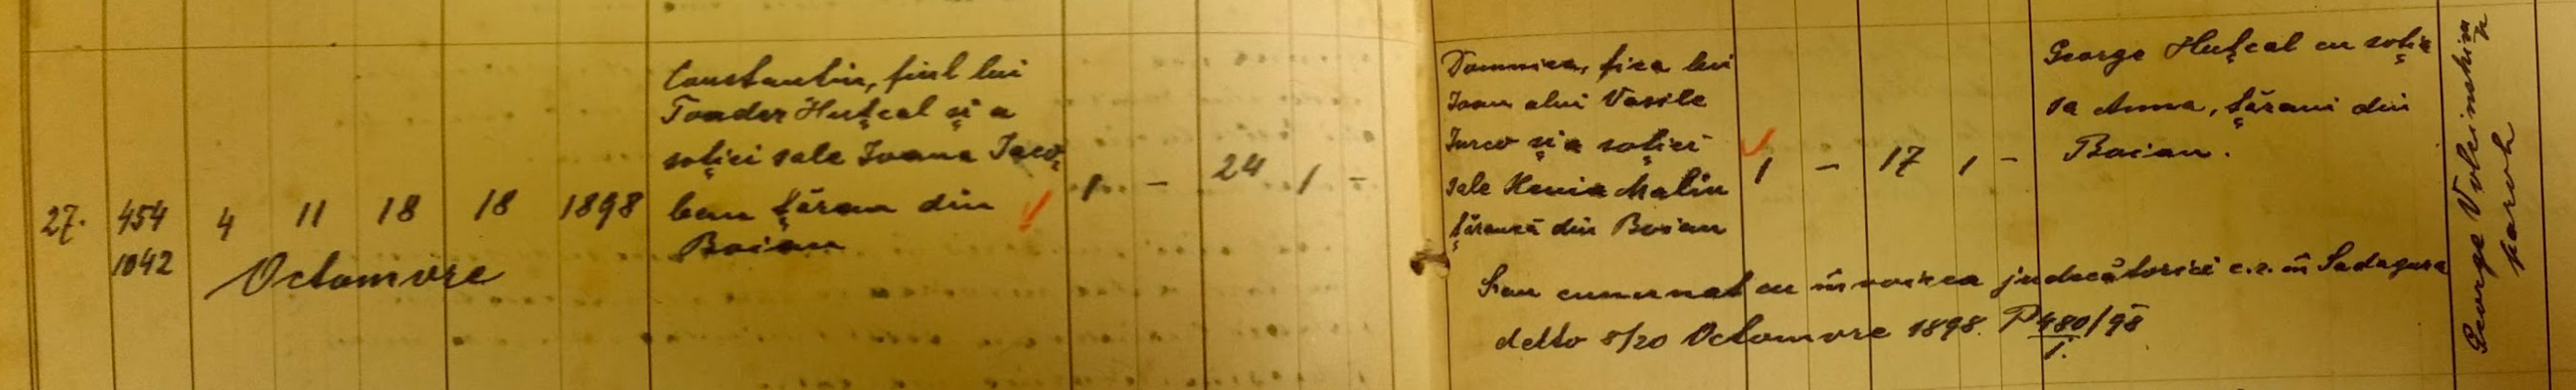 27. 454 4 11 18 18 1898
1042 Octomvre
Constantin, fiul lui
Toader Huțcal și a
soției sale Ioana Iaco-
ban țăran din
Boian
1 - 24 1 -
Domnica, fica lui
Ioan alui Vasile
Iurco și a soției
sale Xenia Malin
țărancă din Boian
1 - 17 1 -
George Huțcal cu soția
sa Anna, țărani din
Boian.
Sau cununat cu învoirea judecătoriei c.r. în Sadagura
ddto 8/20 Octomvre 1898. P 480/98
1.
George Volcinschi
paroh